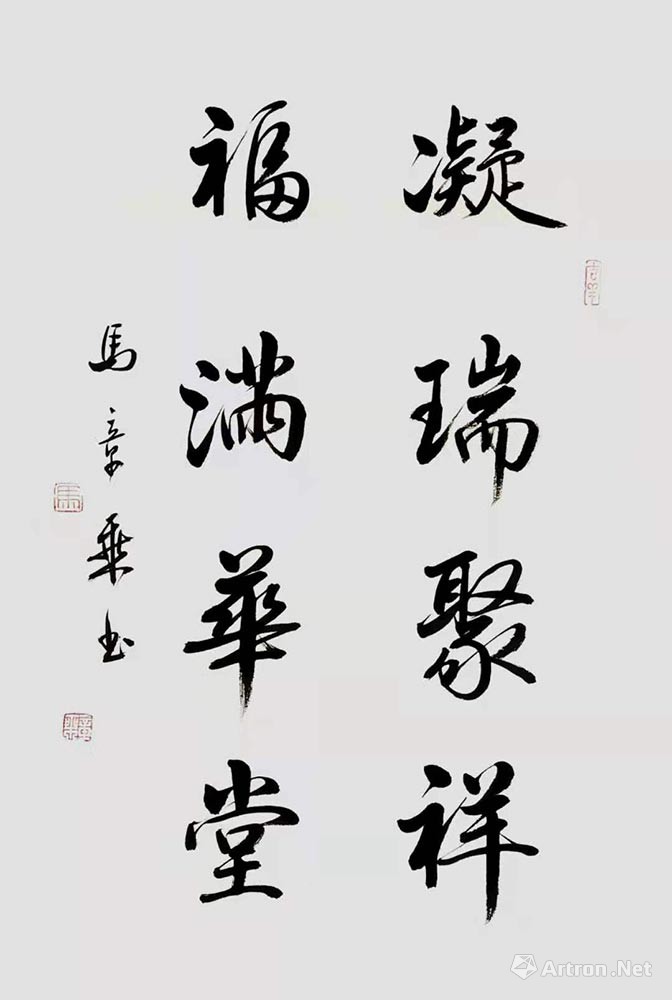 凝瑞聚祥
福满華堂
馬章乘书
Artron.Net